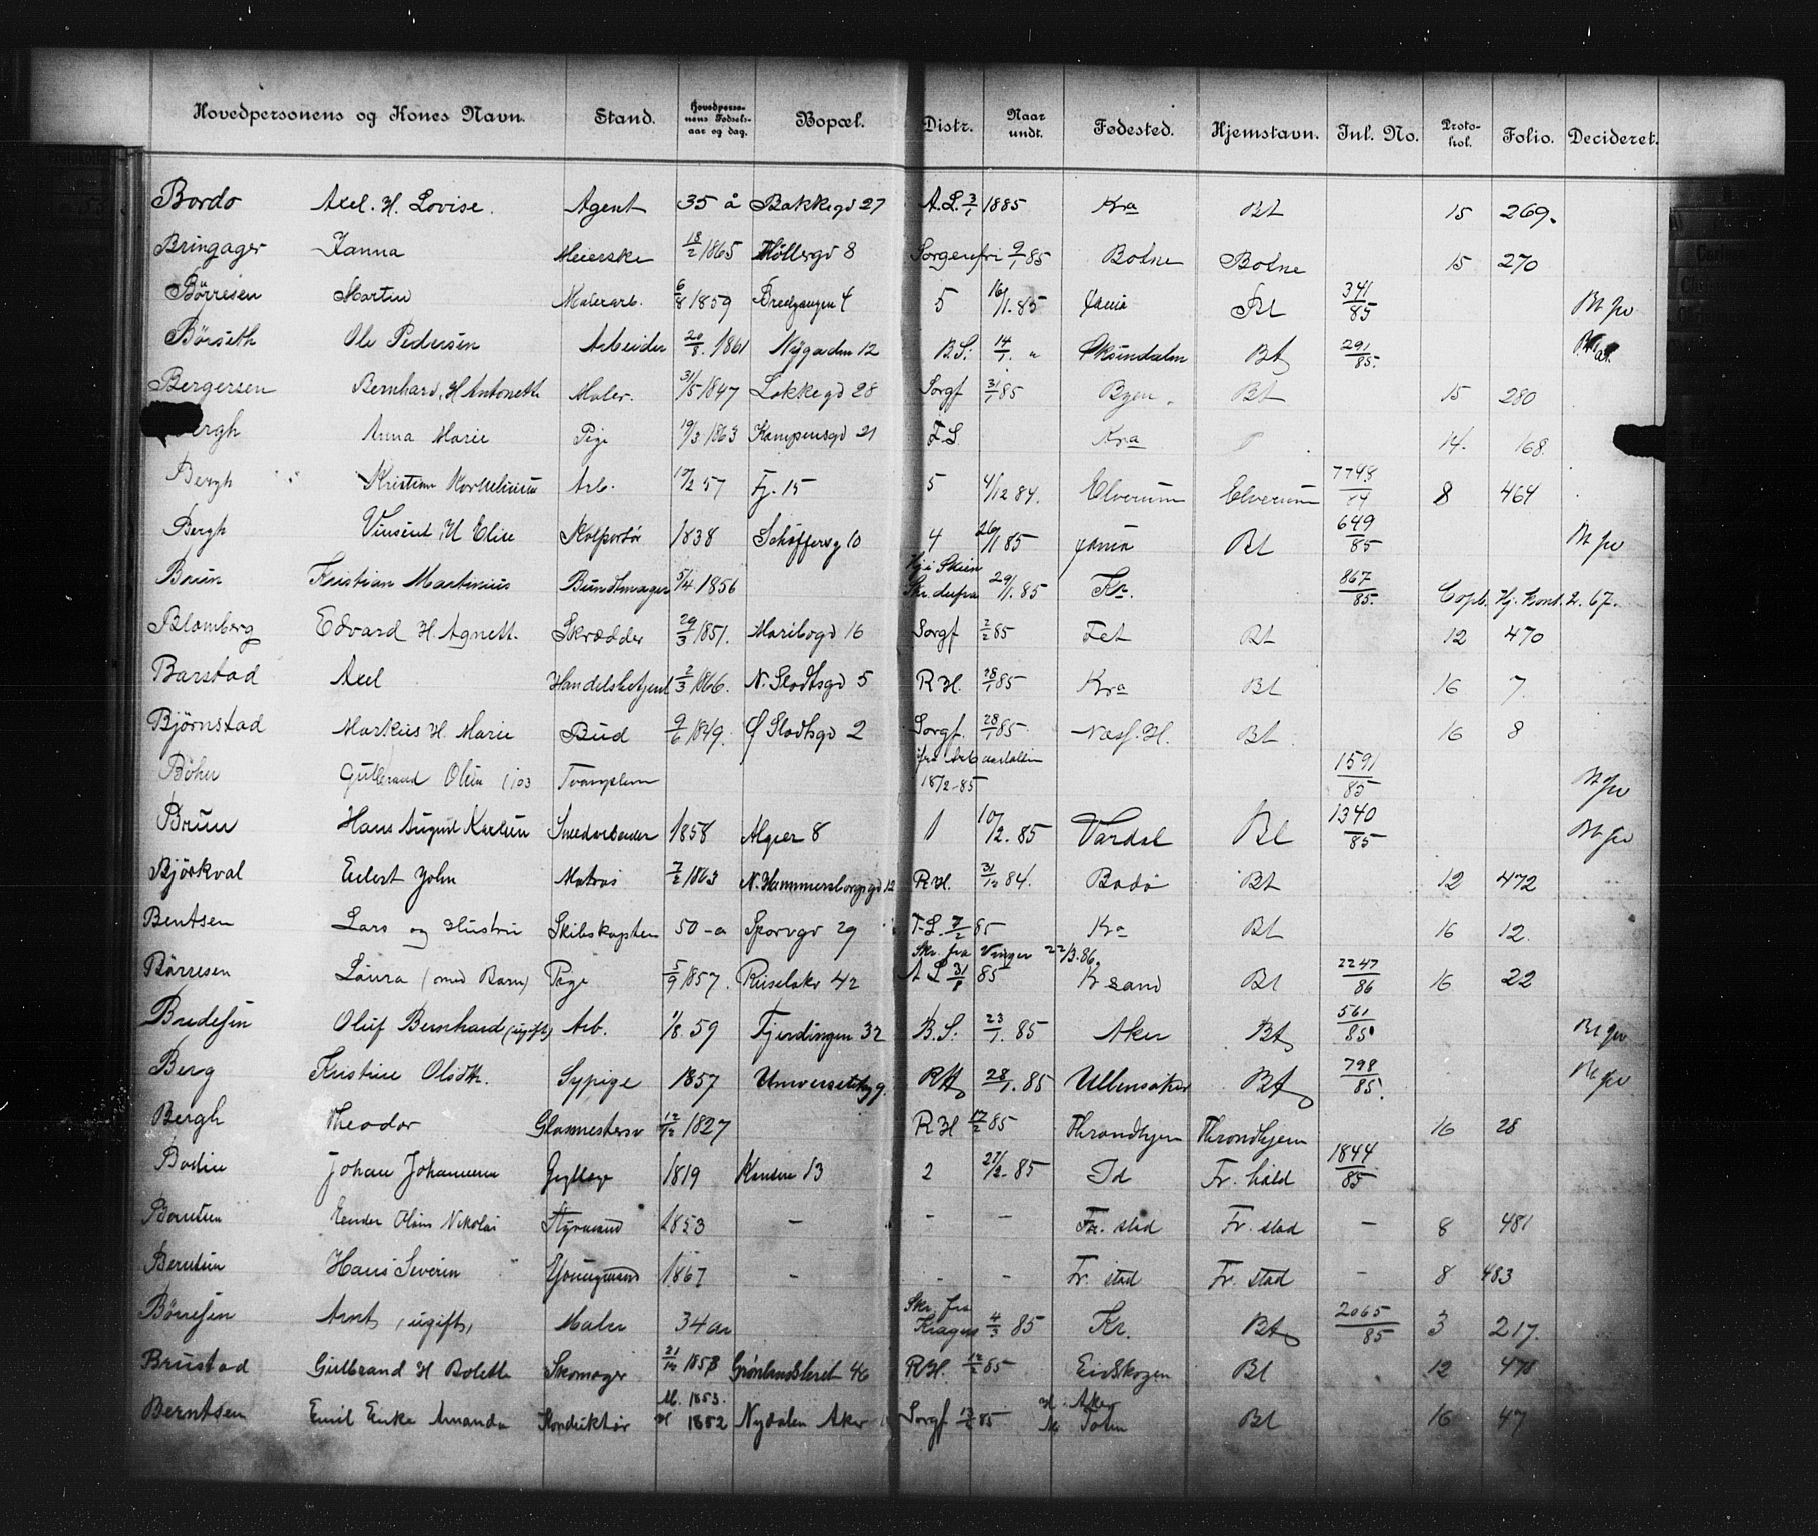 Hovedpersonens og Kones Navn. Stand. Hovedpersonens Fødselsaar og dag. Bopæl. Distr. Naar undt. Fødested. Hjemstavn. Inl. No. Protokol. Folio. Decideret.
Bordo Axel. H. Lovise. Agent 35 å Bakkegd 27 A.L. 3/1 1885 Kra Bt 15 269.
Bringager Hanna Meierske 18/2 1865 Møllergd 8 Sorgenfri 9/1 85 Botne Botne 15 270
Børresen Martin Malerarb. 6/8 1859 Bredgangen 4 5 16/1. 85 Xania Bt 341/85 Bt
Børseth Ole Pedersen Arbeider 20/8. 1861 Nygaden 12 B.S. 14/1. " Bt 291/85.
Bergersen Bernhard, H Antonette Maler. 31/5 1847 Løkkegd 28 Sorgf 31/1 85 Byen. Bt 15 280
Bergh Anna Marie Pige 19/3 1863 Kampensgd 21 F.S Kra 14. 168.
Bergh Kristian Kornelius Arb. 19/2 57 Fj. 15 5 4/12 84. Elverum Elverum 7748/84 8 464
Bergh Vinsent, H Elise Kolportør 1838 Schøffersg 10 4 26/1 85 Xania Bt 649/85 Bt
Brun Kristian Martinius Bundtmager 5/4 1856 Hj i Skien Skr. derfra 29/1. 85 Kr. 867/85. Copb. Hj. Kont. 2. 67.
Blomberg Edvard H. Agnett. Skrædder 29/3 1851. Maribogd 16 Sorgf 2/2 85 Fet Bt 12 470
Barstad Axel Handelsbetjent 2/3 1866. N. Slodtsgd 5 R H. 28/1 85 Kra Bt 16 7.
Bjørnstad Markus H. Marie Bud 9/6 1849. Ø Slodtsgd 2 Sorgf. 28/1 85 Næs H. Bt. 16 8
Bøhn Gulbrand Olsen Tvangslem fra Arb anstalten 18/2-85 1591/85 Bt
Brun Hans August Karlsen Smedarbeider 1858 Algier 8 1 10/2. 85 Vardal Bt 1340/85 Bt
Bjørkval Eilert John Matros 7/2 1863 N. Hammersborggd 12 R H. 31/12 84. Bodø Bt 12 472
Bentsen Lars og Hustru Skibskapten 50-a Sporvgd 29 F-S. 7/2 85 Kra Bt 16 12.
Børresen Laura (med Barn) Pige 5/9 1857. Ruseløkv 42 Skr. fra Vinger 22/3.86. A L 31/1 85 K sand Bt 2247/86 16 22
Bredesen Oluf Bernhard (ugift) Arb. 1/8. 59 Fjerdingen 32 B.S. 23/1. 85 Aker Bt 561/85 Bt
Berg Kristine Olsdtr. Sypige 1857 Universitetsg 9. RH 28/1. 85 Ullensaker Bt 798/85. Bt
Bergh Theodor Glasmestersv 12/12 1827 R H 17/2 85 Throndhjem Throndhjem 16 28
Bodin Johan Johannesen 1819 13 2 27/2. 85 Id Fr. hald 1844/85
Berntsen Olsen Nikolai Styrmand 1853 – – – Fr. stad Fr. stad – 8 481
Berntsen Hans Severin Youngmand 1867 – – – Fr. stad Fr. stad – 8 483
Børresen Arnt, ugift, Maler 34 år Skr. fra Kragerø 4/3 85 Kr. Bt 2065/85 3 217.
Brustad Gulbrand H Bolette Skomager 21/12 1858 Grønlandsleret 46 R.H. 12/2 85 Eidskogen Bt 12 478
Berntsen Emil Enke Amanda Konduktør M. 1853. H 1852 Nydalen Aker Sorgf 13/2 85 H. Aker M. Toten Bt 16 47